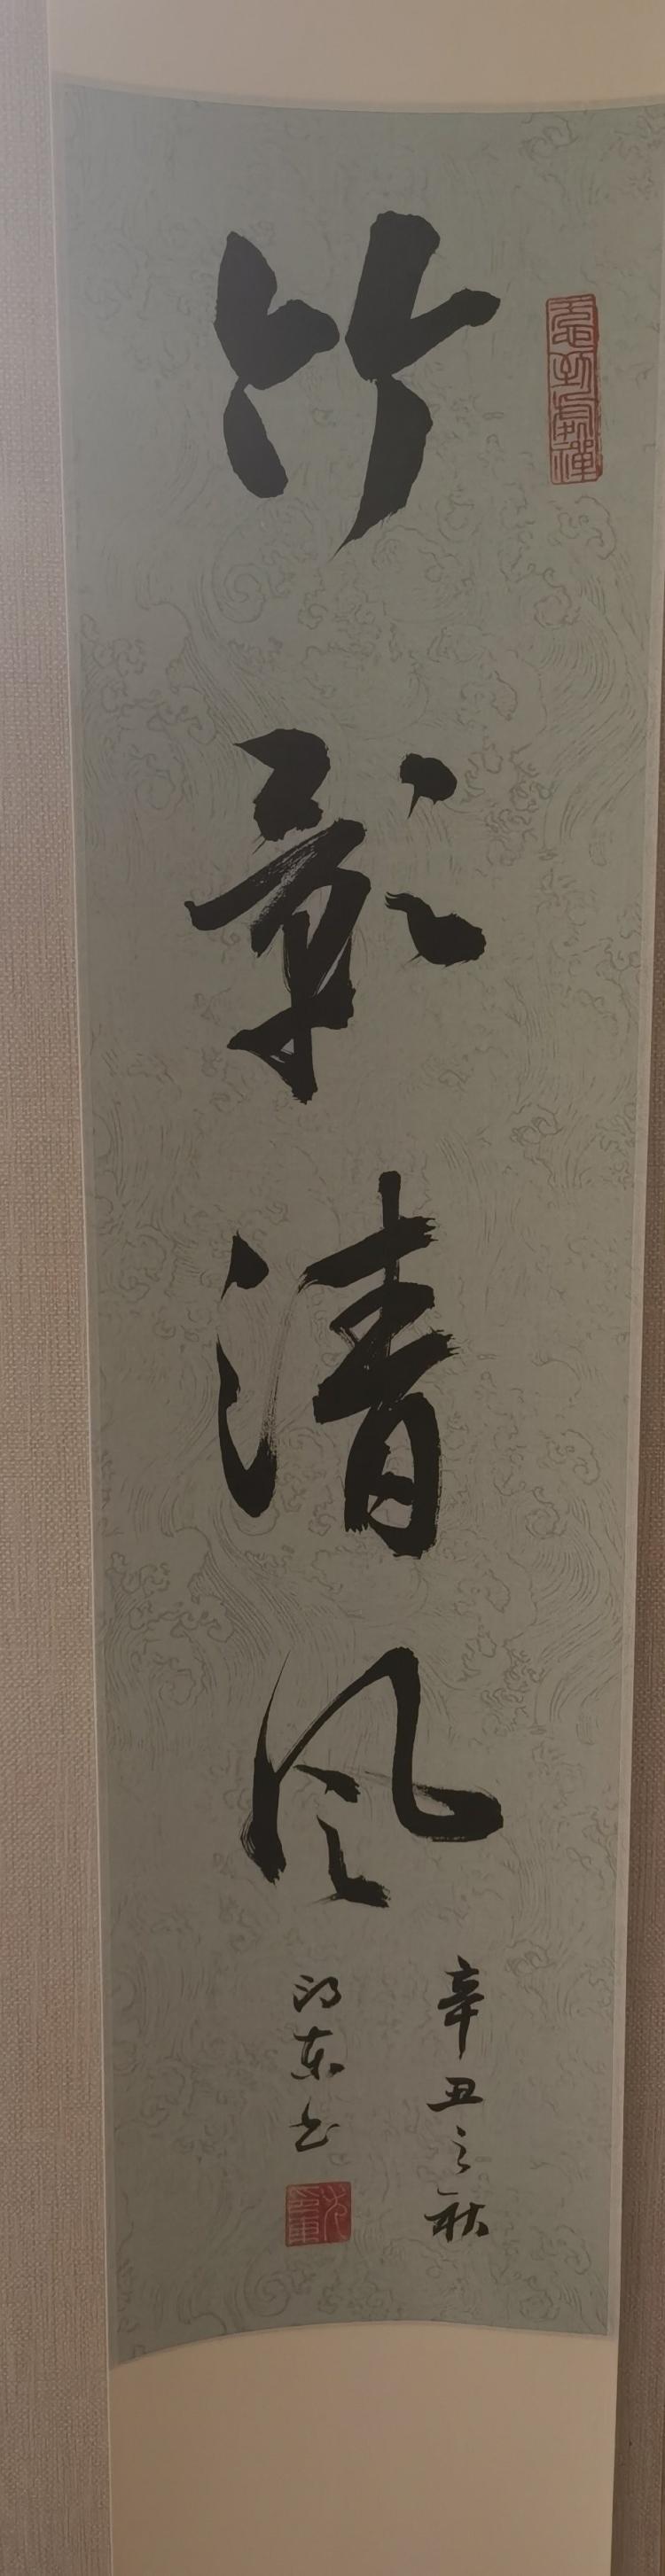 竹影清风
辛丑之秋
东书